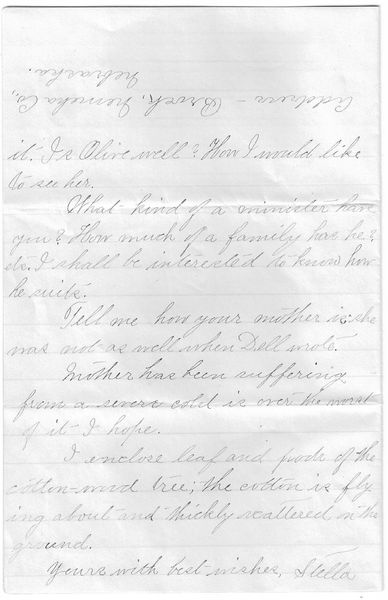 Address - Brock, Nemaha Co.,
Nebraska.
it. Is Olive well? How I would like
to see her.
What kind of a minister have
you? How much of a family has he?
etc. I shall be interested to know how
he suits.
Tell me how your mother is; she
was not as well when Dell wrote.
Mother has been suffering
from a severe cold is over the worst
of it I hope.
I enclose leaf and pods of the
cotton-wood tree; the cotton is fly
ing about and thickly scattered on the
ground.
Yours with best wishes, Stella